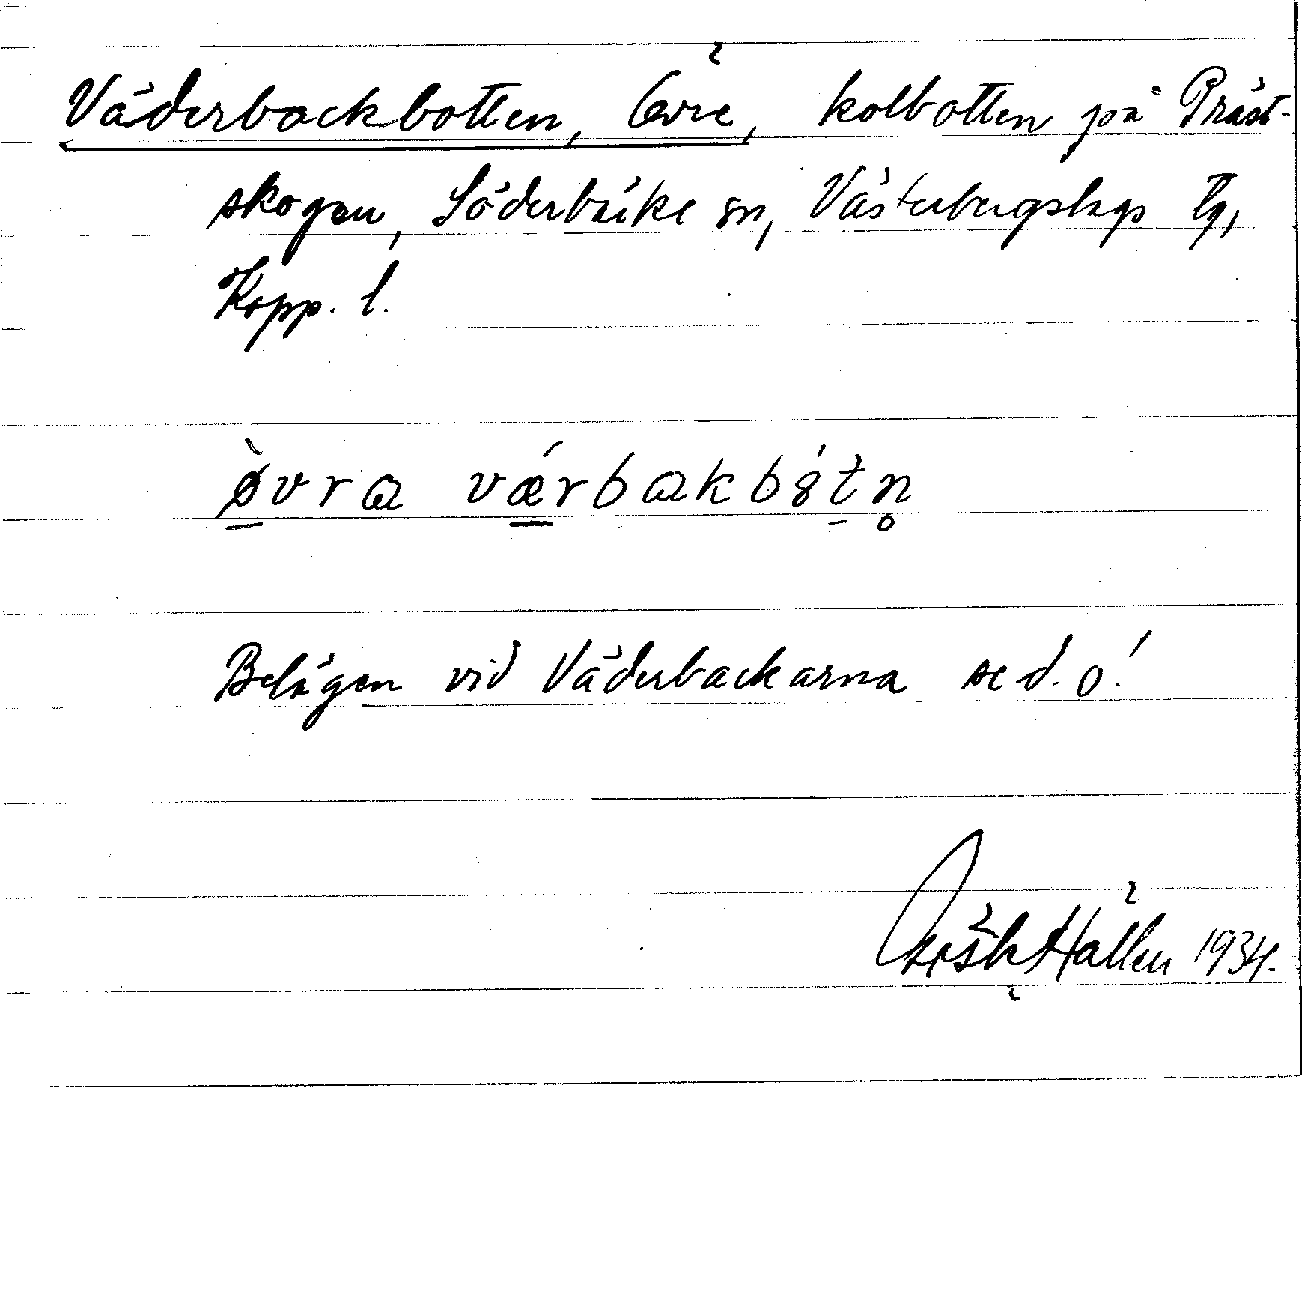 Väderbackbotten, Övre, kolbotten på Präst-
skogen, Söderbärke sn, Västerbergslags tg,
Kopp. l.
ø̀vra vǽrbakbótn̥
Belägen vid Väderbackarna se d. o!
Hållen 1934.